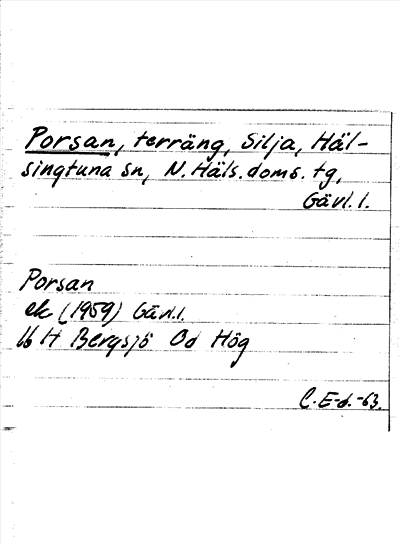 Porsan, terräng, Silja, Häl-
singtuna sn, N. Häls. doms. tg,
Gävl. l.
Porsan
ek (1959) Gävl. l.
16 H Bergsjö Od Hög
C. E-d.-63.